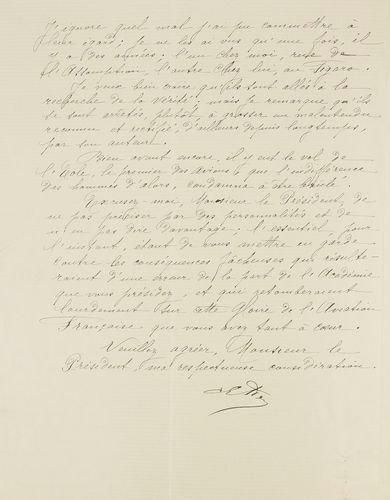 J'ignore quel mal j'ai pu commettre à
leur égard; je ne les ai vus qu'une fois, il
y a des années: l'un chez moi, rue de
l'Assomption, l'autre chez lui, au Figaro.
Je veux bien croire qu'ils sont allés à la
recherche de la vérité; mais je remarque qu'ils
se sont arrêtés, plutôt, à grossir un malentendu
reconnu et rectifié, d'ailleurs depuis longtemps,
par son auteur.
Bien avant encore, il y eut le vol de
l'Eole, le premier des avions que l'indifférence
des hommes d'alors, condamna à être
Excusez-moi, Monsieur le Président, de
ne pas préciser par des personnalités et de
n'en pas dire davantage; l'essentiel, pour
l'instant, étant de vous mettre en garde
contre les conséquences fâcheuses qui résulte-
raient d'une erreur de la part de l'Académie
que vous présidez, et qui retomberaient
lourdement sur cette Gloire de l'Aviation
Française que vous avez tant à cœur.
Veuillez agréer, Monsieur le
Président, ma respectueuse considération.